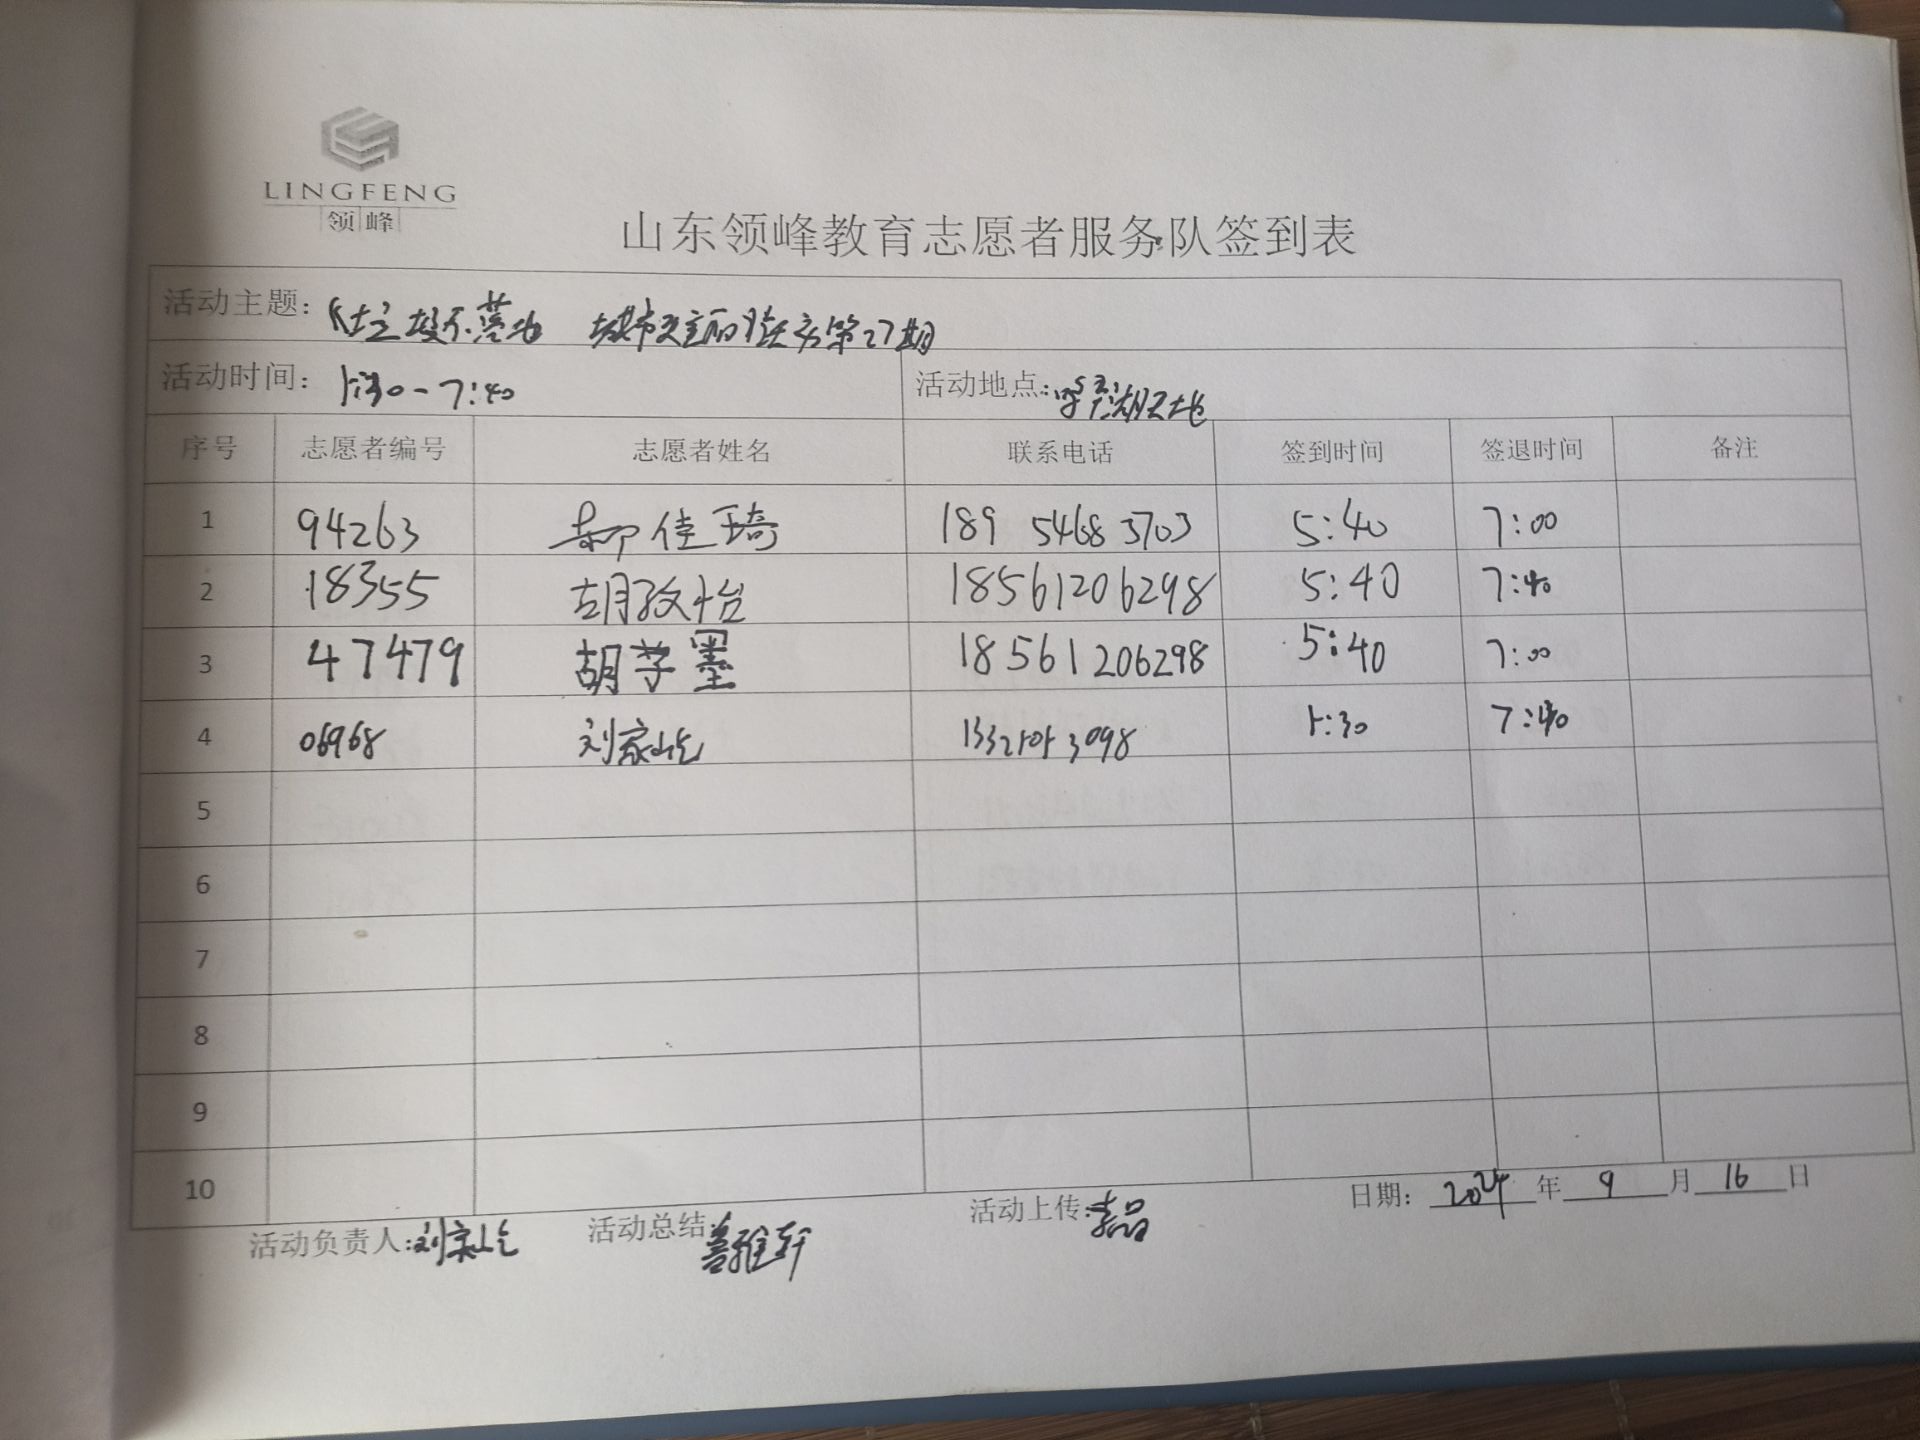 LINGFENG
领峰
山东领峰教育志愿者服务队签到表
活动主题： 城市更美丽 第27期
活动时间： 5:30-7:40 活动地点： 湖天地
序号 志愿者编号 志愿者姓名 联系电话 签到时间 签退时间 备注
1 94263 郝佳琦 189 5468 3703 5:40 7:00
2 18355 胡孜怡 18561206298 5:40 7:40
3 47479 胡学墨 18561206298 5:40 7:00
4 06968 刘家屹 13321053098 5:30 7:40
5
6
7
8
9
10
日期： 2024 年 9 月 16 日
活动负责人: 刘家屹 活动总结 雅轩 活动上传: 李品